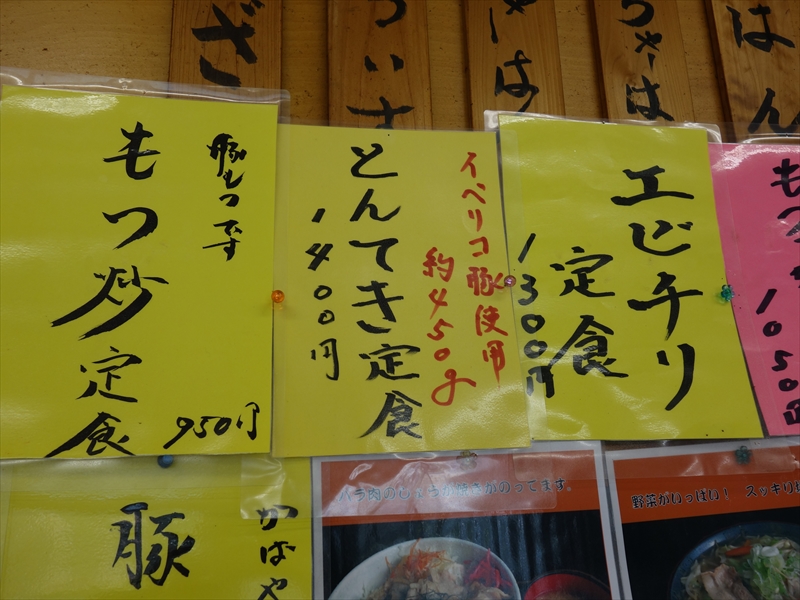 ざ
ついさ
はん
もつ炒定食
豚もつです
950円
イベリコ豚使用
約450g
とんてき定食
1400円
エビチリ
定食
1300円
もつ
1050円
豚
かばや
バラ肉のしょうが焼きがのってます。
野菜がいっぱい! スッキリ